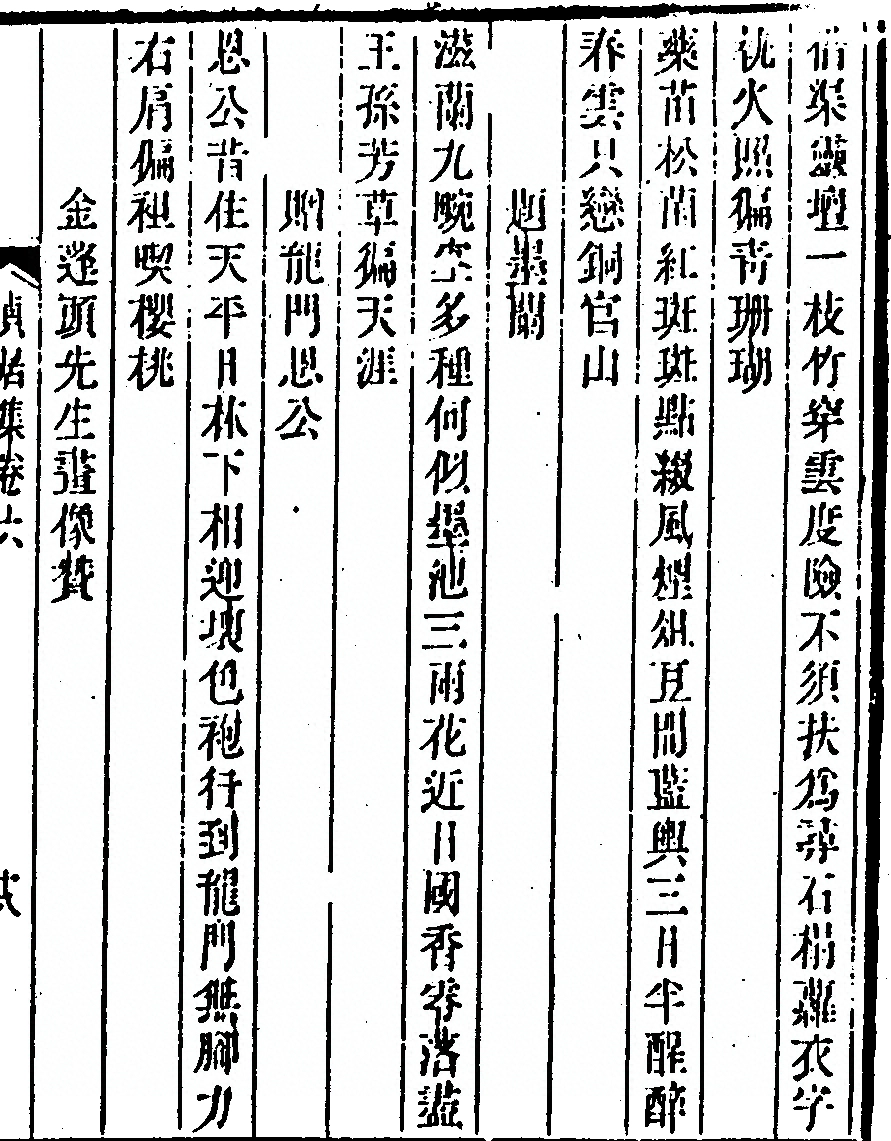 借渠靈壇一枝竹穿雲度險不須扶爲尋石榻蘿衣字
秋火照徧青珊瑚
藥苗松菌紅斑斑點綴風煙俎豆間藍輿三日半醒醉
春雲只戀銅官山
題墨蘭
滋蘭九畹空多種何似墨池三兩花近日國香零落盡
王孫芳草徧天涯
贈龍門恩公
恩公昔住天平日林下相迎壞色袍行到龍門無腳力
右肩偏袒喫櫻桃
金蓬頭先生畫像贊
貞居集卷六
弐